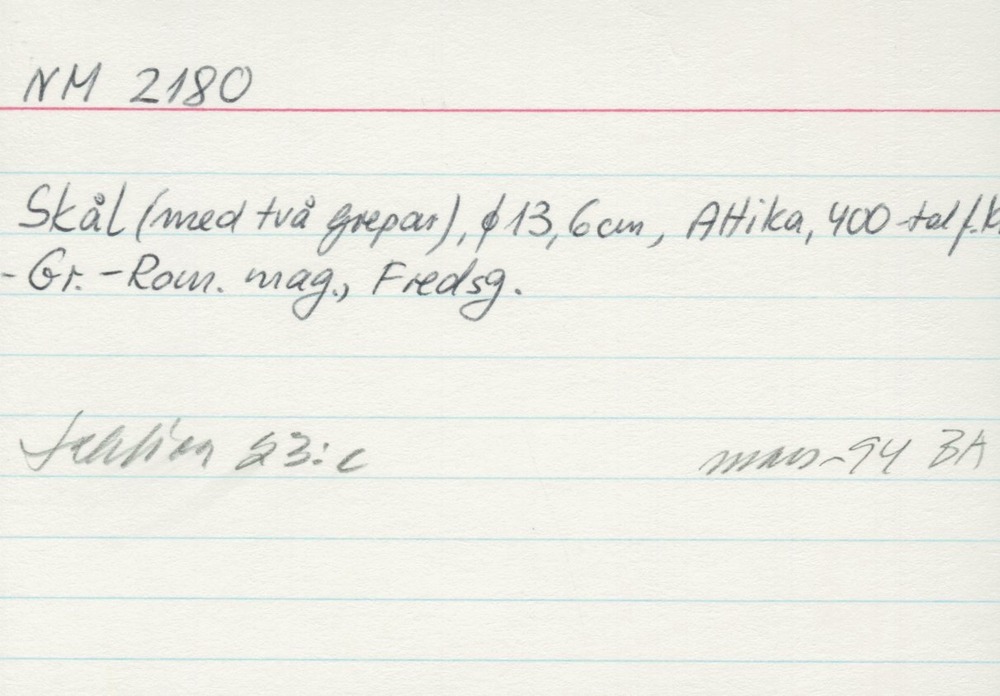 NM 2180
Skål (med två grepar), ϕ 13,6 cm, Attika, 400-tal f.k
- Gr.-Rom. mag., Fredsg.
sektion 23:c
mars-94 BA